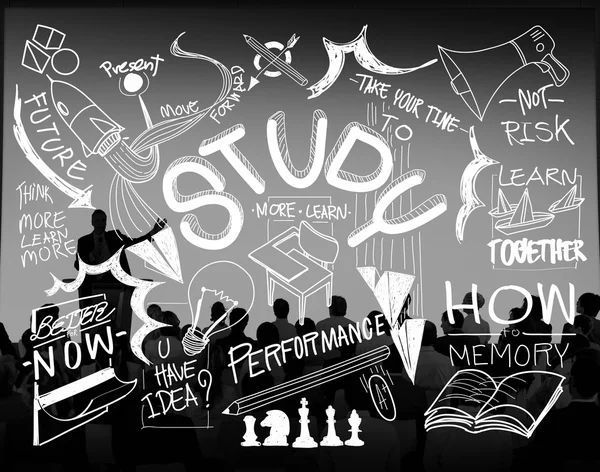 Present
MOVE
FORWARD
FUTURE
THINK
MORE
LEARN
MORE
-TAKE YOUR TIME-
TO
STUDY
·MORE·LEARN·
-NOT-
RISK
LEARN
TOGETHER
BETTER
FOR
-NOW-
U
HAVE
IDEA?
PERFORMANCE
A+
HOW
to
MEMORY